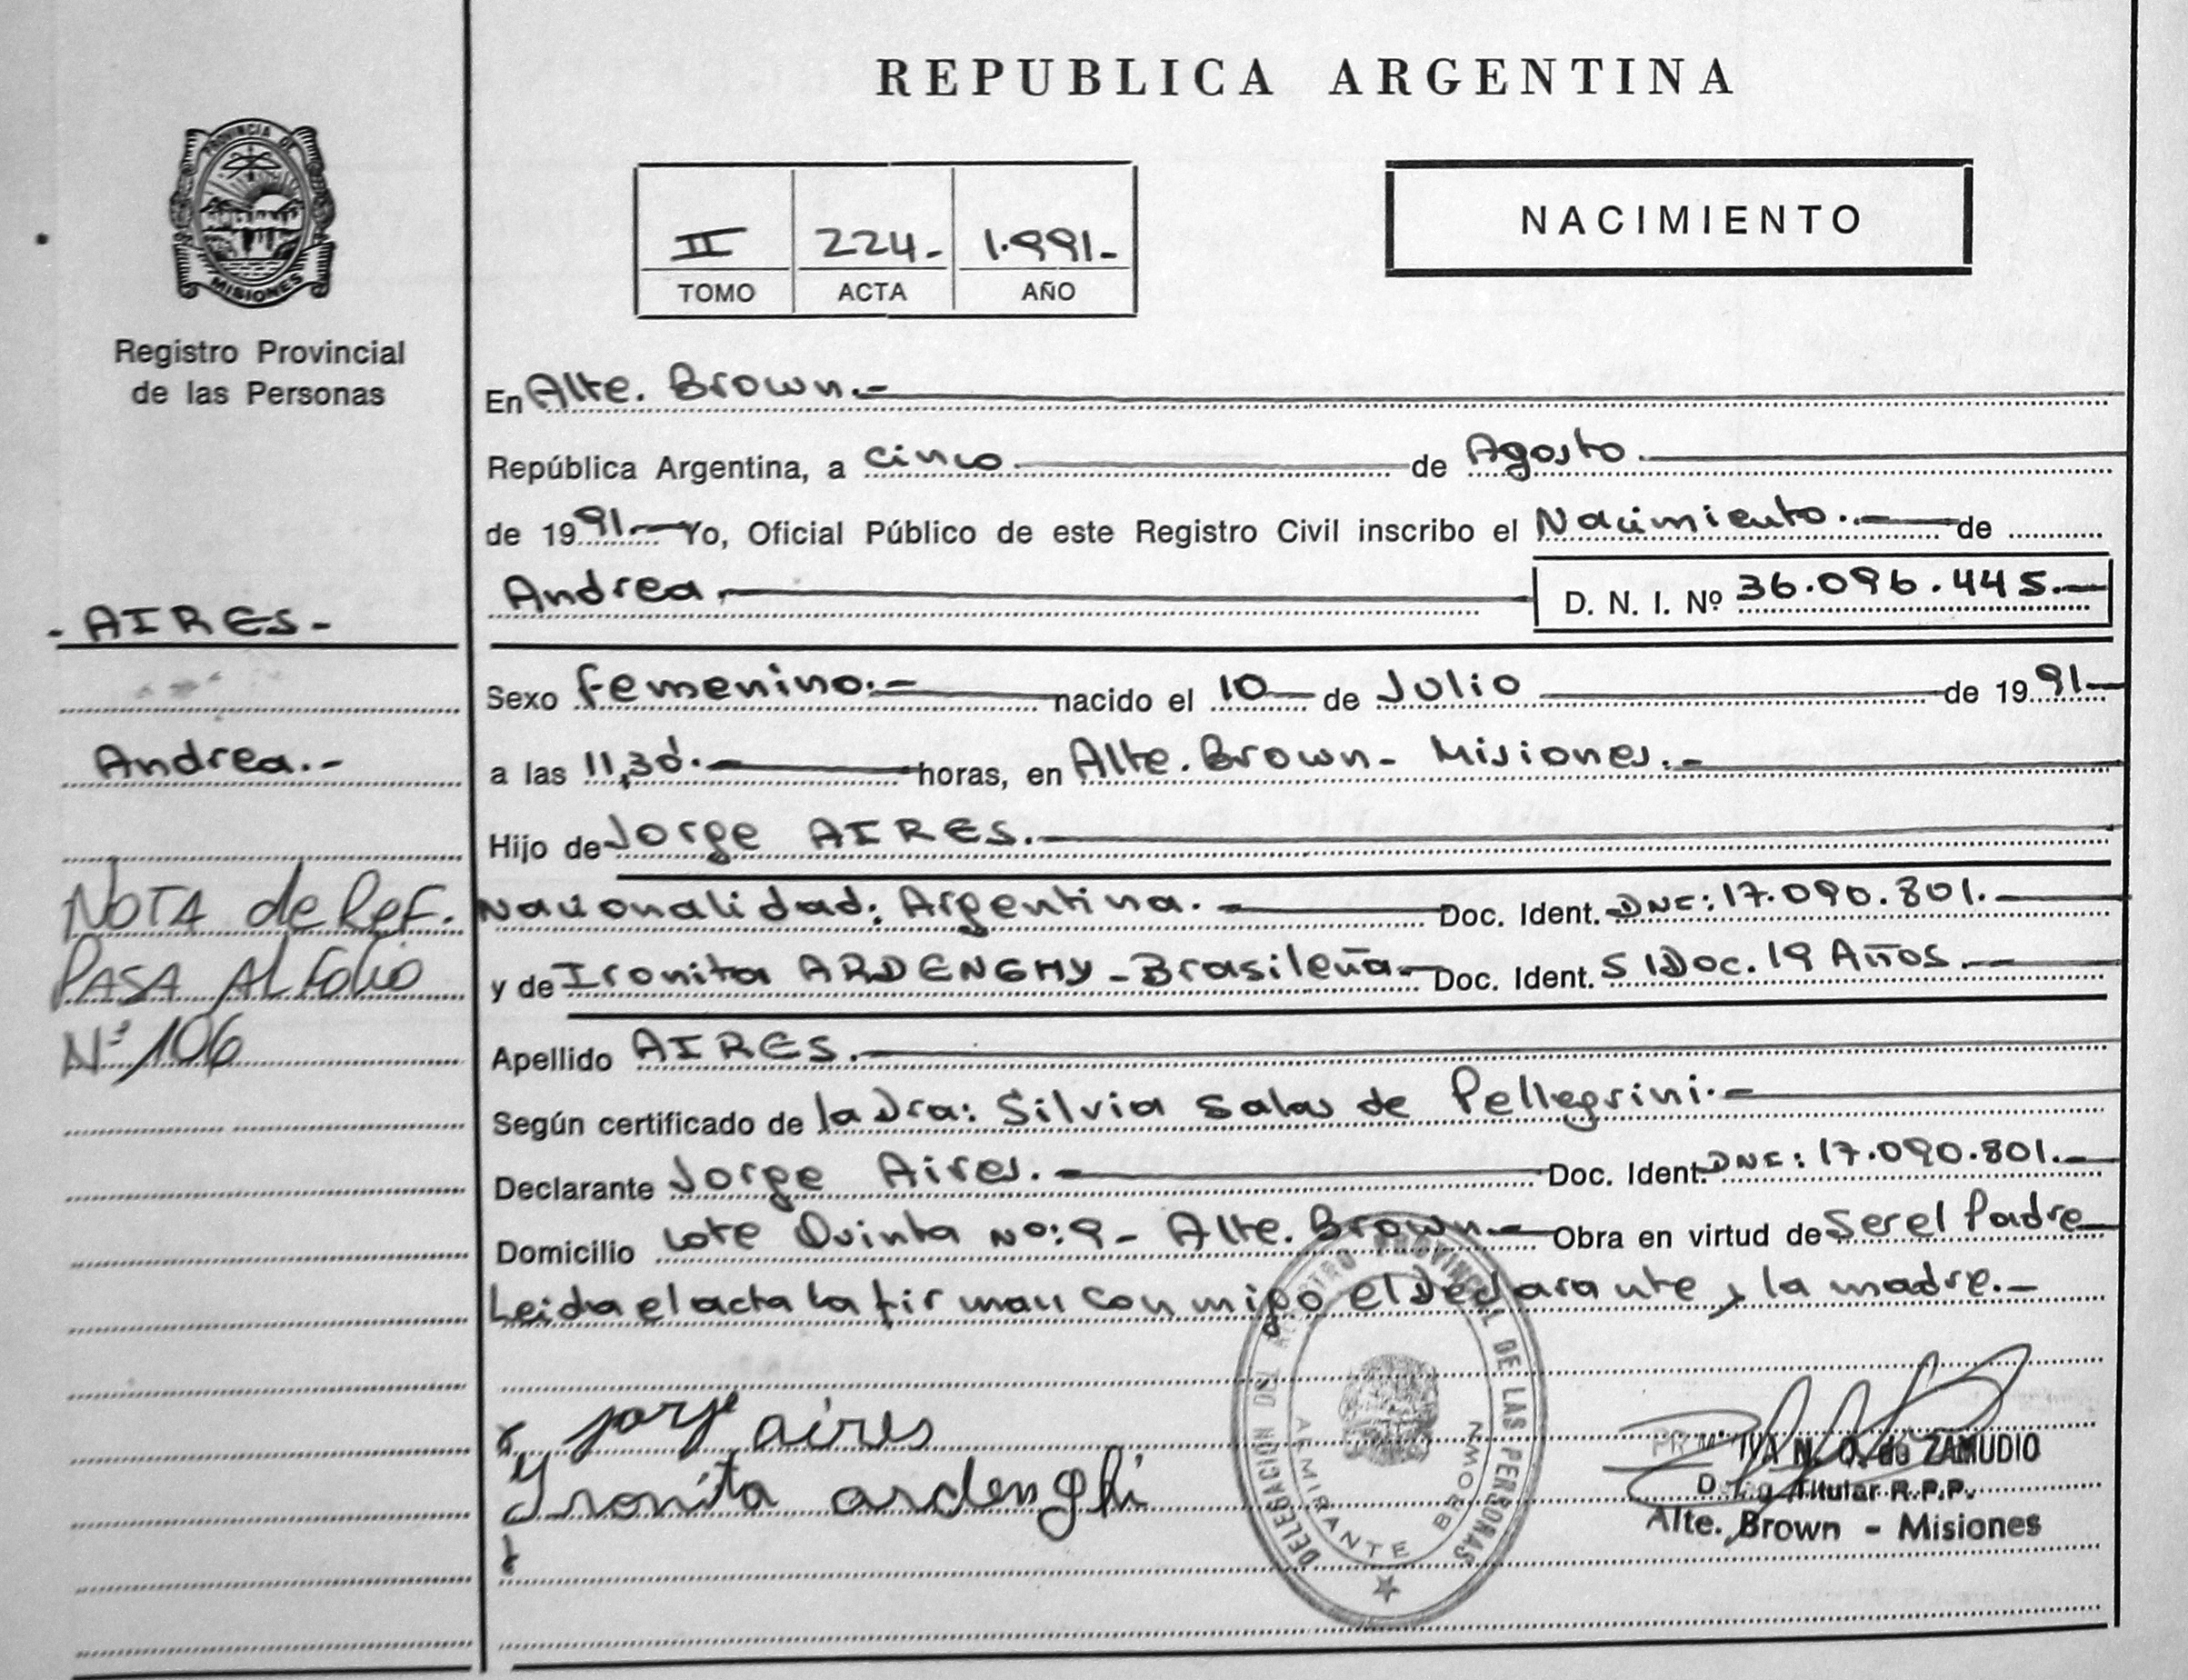 REPUBLICA ARGENTINA
PROVINCIA DE
MISIONES
Registro Provincial
de las Personas
II 224- 1.991-
TOMO ACTA AÑO
NACIMIENTO
En Alte. Brown.-
República Argentina, a cinco de Agosto.
de 1991.- Yo, Oficial Público de este Registro Civil inscribo el Nacimiento.- de
Andrea.- D. N. I. Nº 36.096.445.-
- AIRES-
Sexo femenino.- nacido el 10 de Julio de 1991-
Andrea.-
a las 11,30.- horas, en Alte. Brown- Misiones.-
Hijo de Jorge AIRES.-
NOTA de Ref.
PASA AL Folio
Nº 106
Nacionalidad: Argentina.- Doc. Ident. DNI: 17.090.801.-
y de Ironita ARDENGHY-Brasileña- Doc. Ident. S/Doc. 19 Años.-
Apellido AIRES.-
Según certificado de la Dra: Silvia Salas de Pellegrini.-
Declarante Jorge Aires.- Doc. Ident. DNI: 17.090.801.-
Domicilio Lote Quinta Nº:9- Alte. Brown.- Obra en virtud de Ser el Padre
Leida el acta la firman conmigo el Declarante y la madre.-
x jorje aires
Ironita ardenghi
DELEGACION REGISTRO PROVINCIAL DE LAS PERSONAS
ALMIRANTE BROWN
N. O. de ZAMUDIO
Titular R.P.P.
Alte. Brown - Misiones